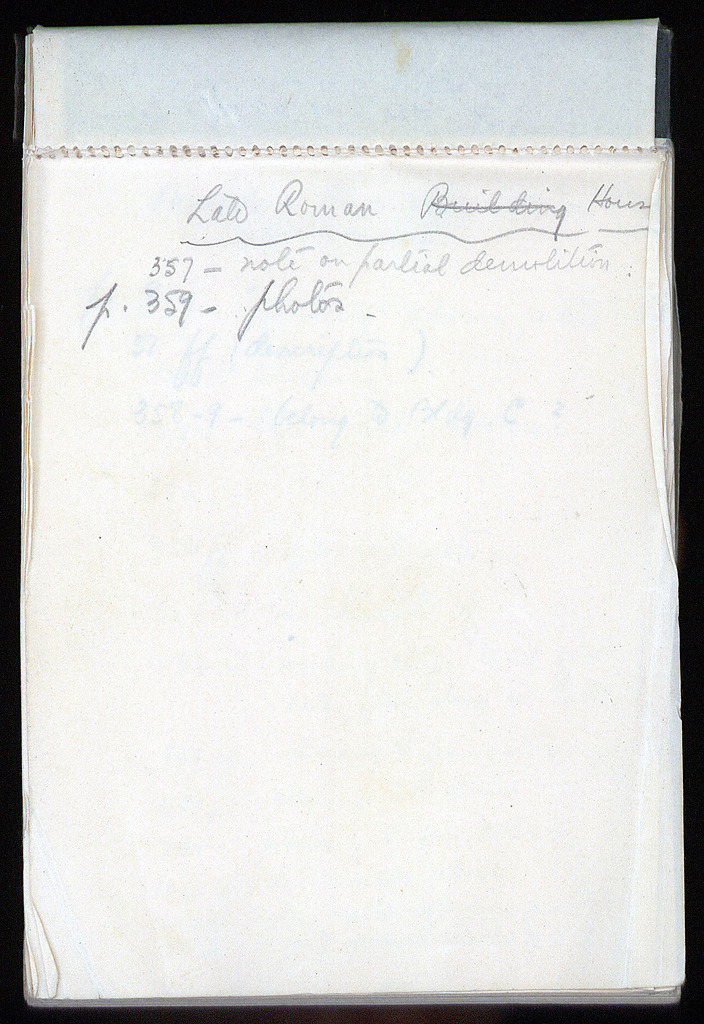 Late Roman Building Hous
357 – note on partial demolition.
p. 359 – photos –
51 ff (description)
358-9 – belong to Bldg. C ?